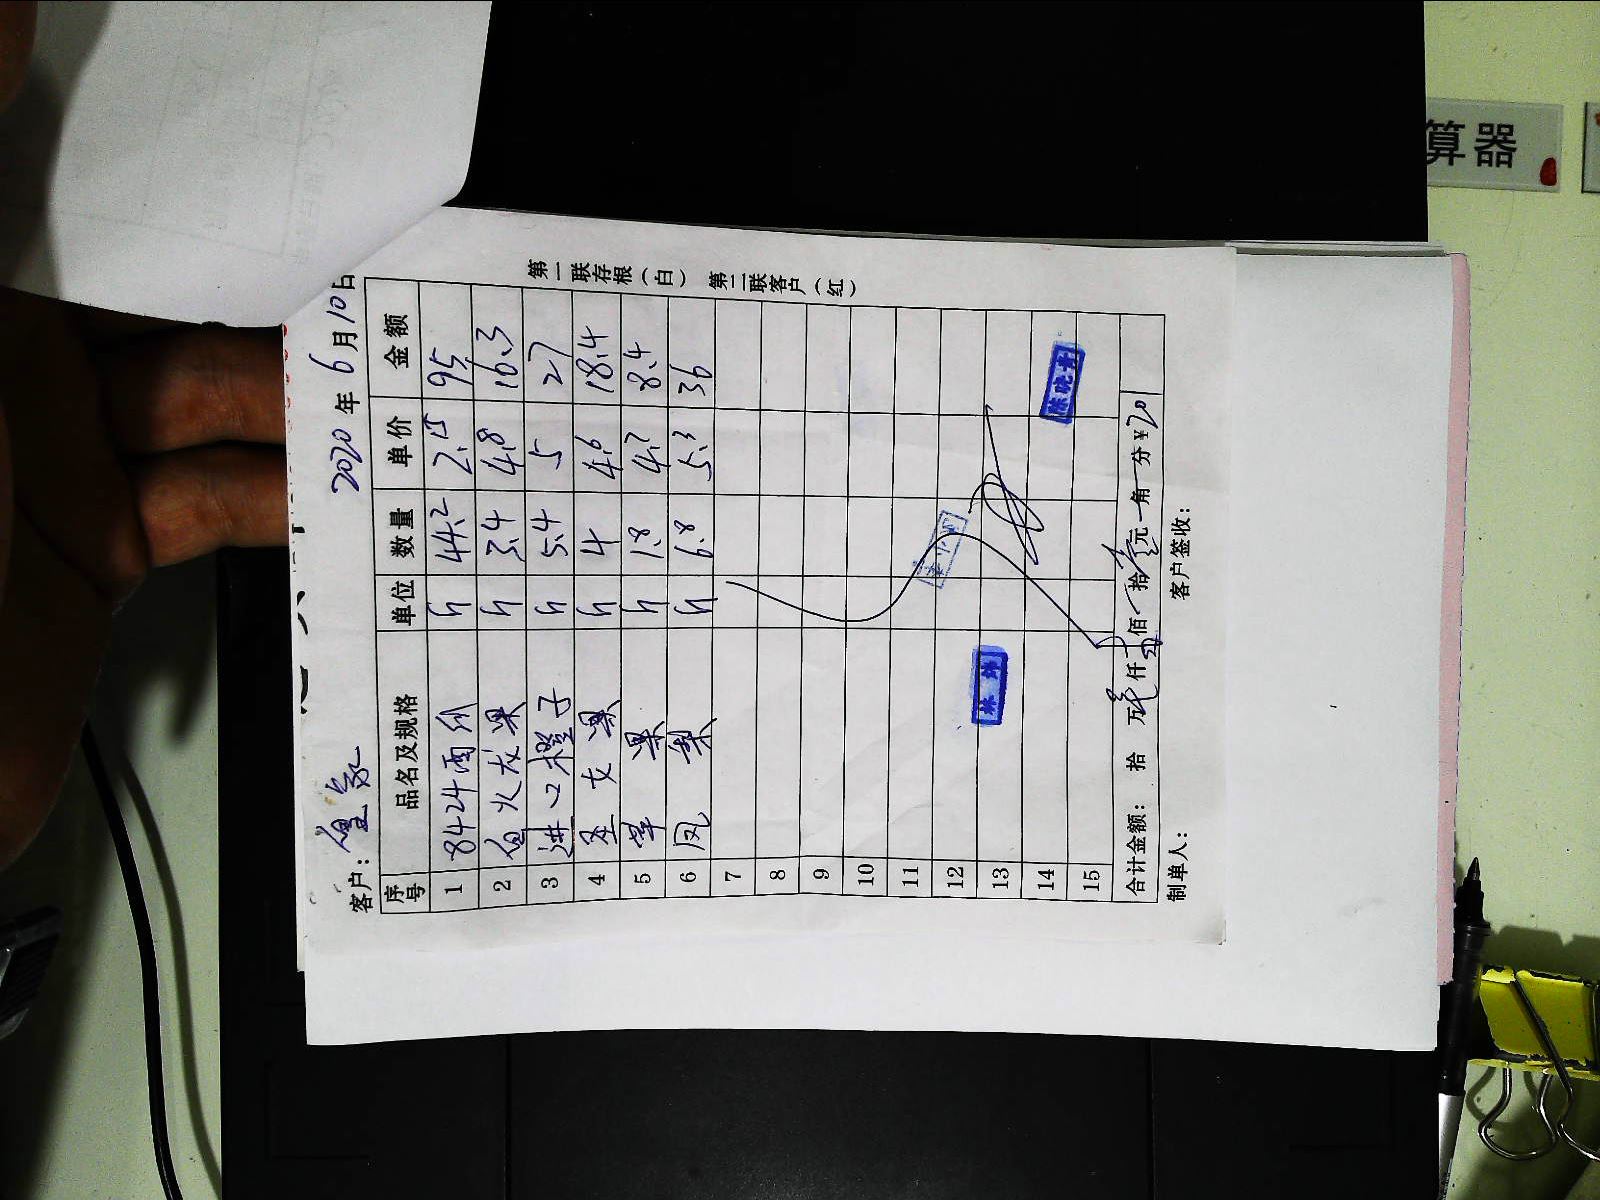 算器
2020年6月10日
客户：
序号 品名及规格 单位 数量 单价 金额
1 8424西瓜 斤 44.2 2.15 95
2 白火龙果 斤 3.4 4.8 16.3
3 进口橙子 斤 5.4 5 27
4 圣女果 斤 4 4.6 18.4
5 苹果 斤 1.8 4.7 8.4
6 凤梨 斤 6.8 5.3 36
7
8
9
10
11
12
13
14
15
合计金额： 拾 万 仟 佰 拾 元 角 分 ¥201
制单人： 客户签收：
第一联存根（白） 第二联客户（红）